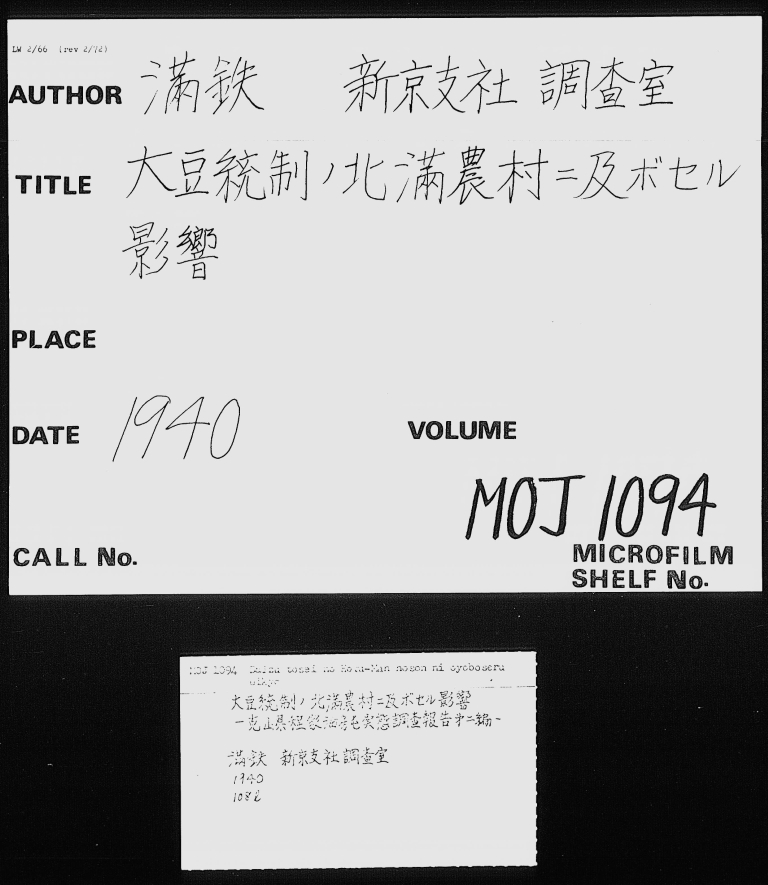 LW 2/66 (rev 2/72)
AUTHOR 満鉄 新京支社 調査室
TITLE 大豆統制ノ北満農村ニ及ボセル
影響
PLACE
DATE 1940
VOLUME
MOJ 1094
CALL No.
MICROFILM
SHELF No.
MOJ 1094 Daizu tosei no Hoku-Man noson ni oyoboseru
eikyo
大豆統制ノ北満農村ニ及ボセル影響
実態調査報告
満鉄 新京支社調査室
1940
1082